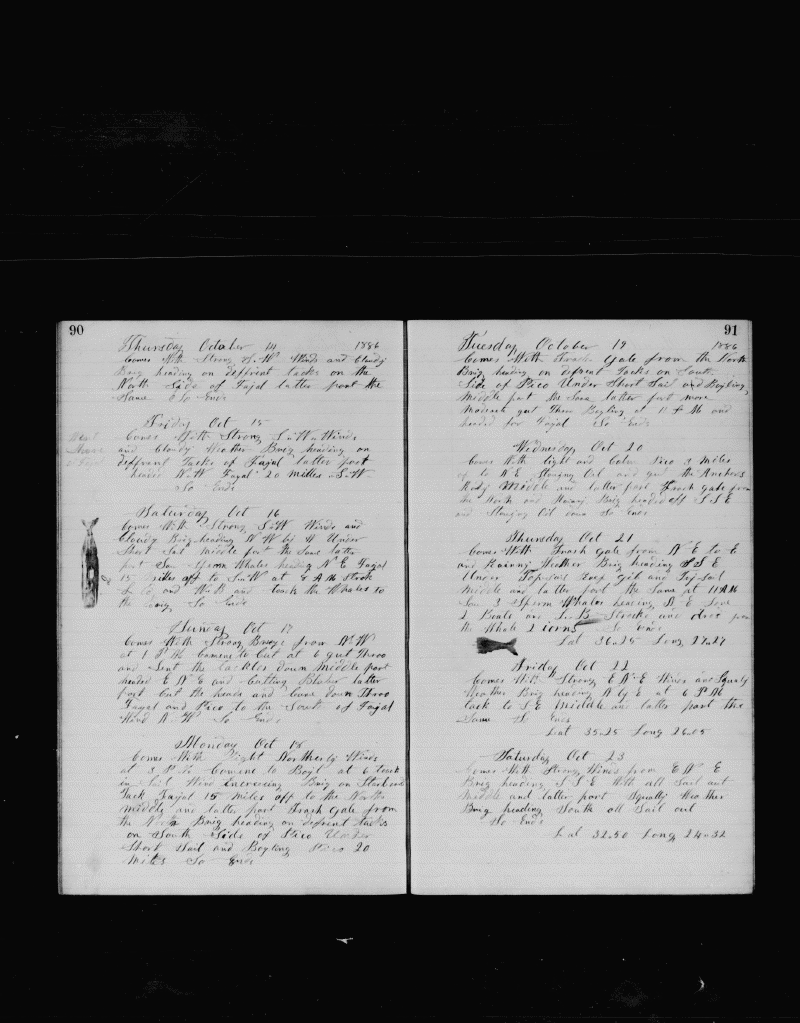 90
Thursday October 14 1886
Comes With Strong S.W Winds and Cloudy
Brig heading on diffrent tacks on the
North Side of Fajal latter part the
Same So Ends
Friday Oct 15
Comes With Strong S.W Winds
and Cloudy Weather Brig heading on
diffrent Tacks of Fajal latter part
headed N.W Fayal 20 miles S.W
So Ends
Saturday Oct 16
Comes With Strong S.W Winds and
Cloudy Brig heading N W by W Under
Short Sail Middle part the Same latter
part Saw Sperm Whales heading N E Fayal
15 Miles off to S.W at 8 A M Strok
and took the Whales to
the So Ends
Sunday Oct 17
Comes With Strong Breeze from N.W
at 1 P M Comenc to Cut at 6 got Throo
and Sent the tackles down Middle part
headed E N E and Cutting Blubber latter
part Cut the heads and Come down Throo
Fayal and Pico to the South of Fayal
Wind N.W So Ends
Monday Oct 18
Comes With light Northerly Winds
at 3 P M Comenc to Boyl at 6 took
in Sail Wind Increesing Brig on Starbord
Tack Fayal 15 miles off to the North
Middle and latter part Frash Gale from
the North Brig heading on defrent tacks
on South Side of Pico Under
Short Sail and Boyleng Pico 20
Miles So Ends
91
Tuesday October 19 1886
Comes With Frash Gale from the North
Brig heading on defrent Tacks on South
Side of Pico Under Short Sail and Boyling
Middle part the Same latter part more
Moderate got Throo Boyling at 11 A M and
headed for Fayal So Ends
Wednesday Oct 20
Comes With light and Calm Pico 3 Miles
of to N E Stowing Oil and got the Anchors
Redy Middle and latter part Frash gale from
the North and Rainy Brig headed off S S E
and Stowing Oil down So Ends
Thursday Oct 21
Comes With Frash gale from N E to E
and Rainy Weather Brig heading S S E
Under Topsails Reep gib and Topsail
Middle and latter part the Same at 11 A M
Saw 3 Sperm Whales heading S E Love
2 Boats and L. B Stroocke and dres from
the Whale 2 irons So Ends
Lat 36=25 Long 27=27
Friday Oct 22
Comes With Strong E N E Winds and Squaly
Weather Brig heading N by E at 6 P M
tack to S E Middle and latter part the
Same So Ends
Lat 35.25 Long 26=05
Saturday Oct 23
Comes With Strong Winds from E N E
Brig heading S S E With all Sail out
Middle and latter part Squally Weather
Brig heading South all Sail out
So Ends
Lat 32.50 Long 24=32